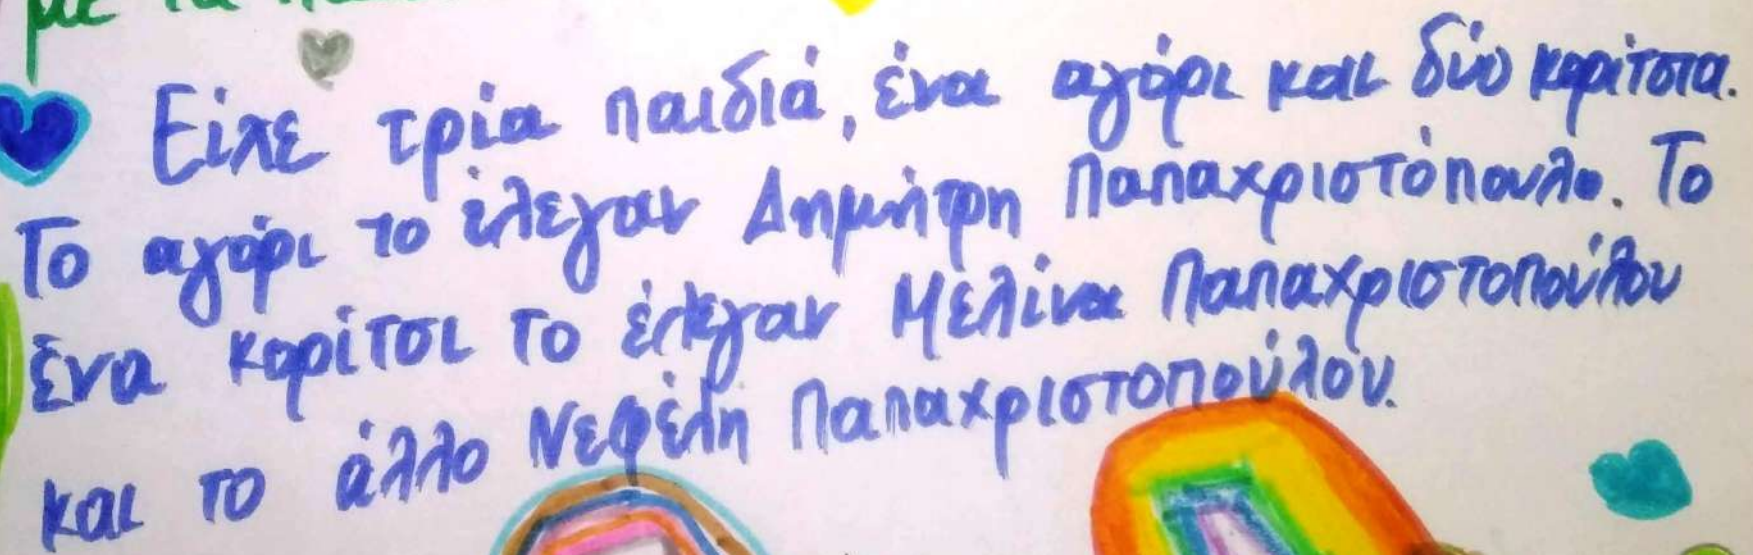 με τα
Είχε τρία παιδιά, ένα αγόρι και δύο κορίτσια.
Το αγόρι το έλεγαν Δημήτρη Παπαχριστόπουλο. Το
ένα κορίτσι το έλεγαν Μελίνα Παπαχριστοπούλου
και το άλλο Νεφέλη Παπαχριστοπούλου.